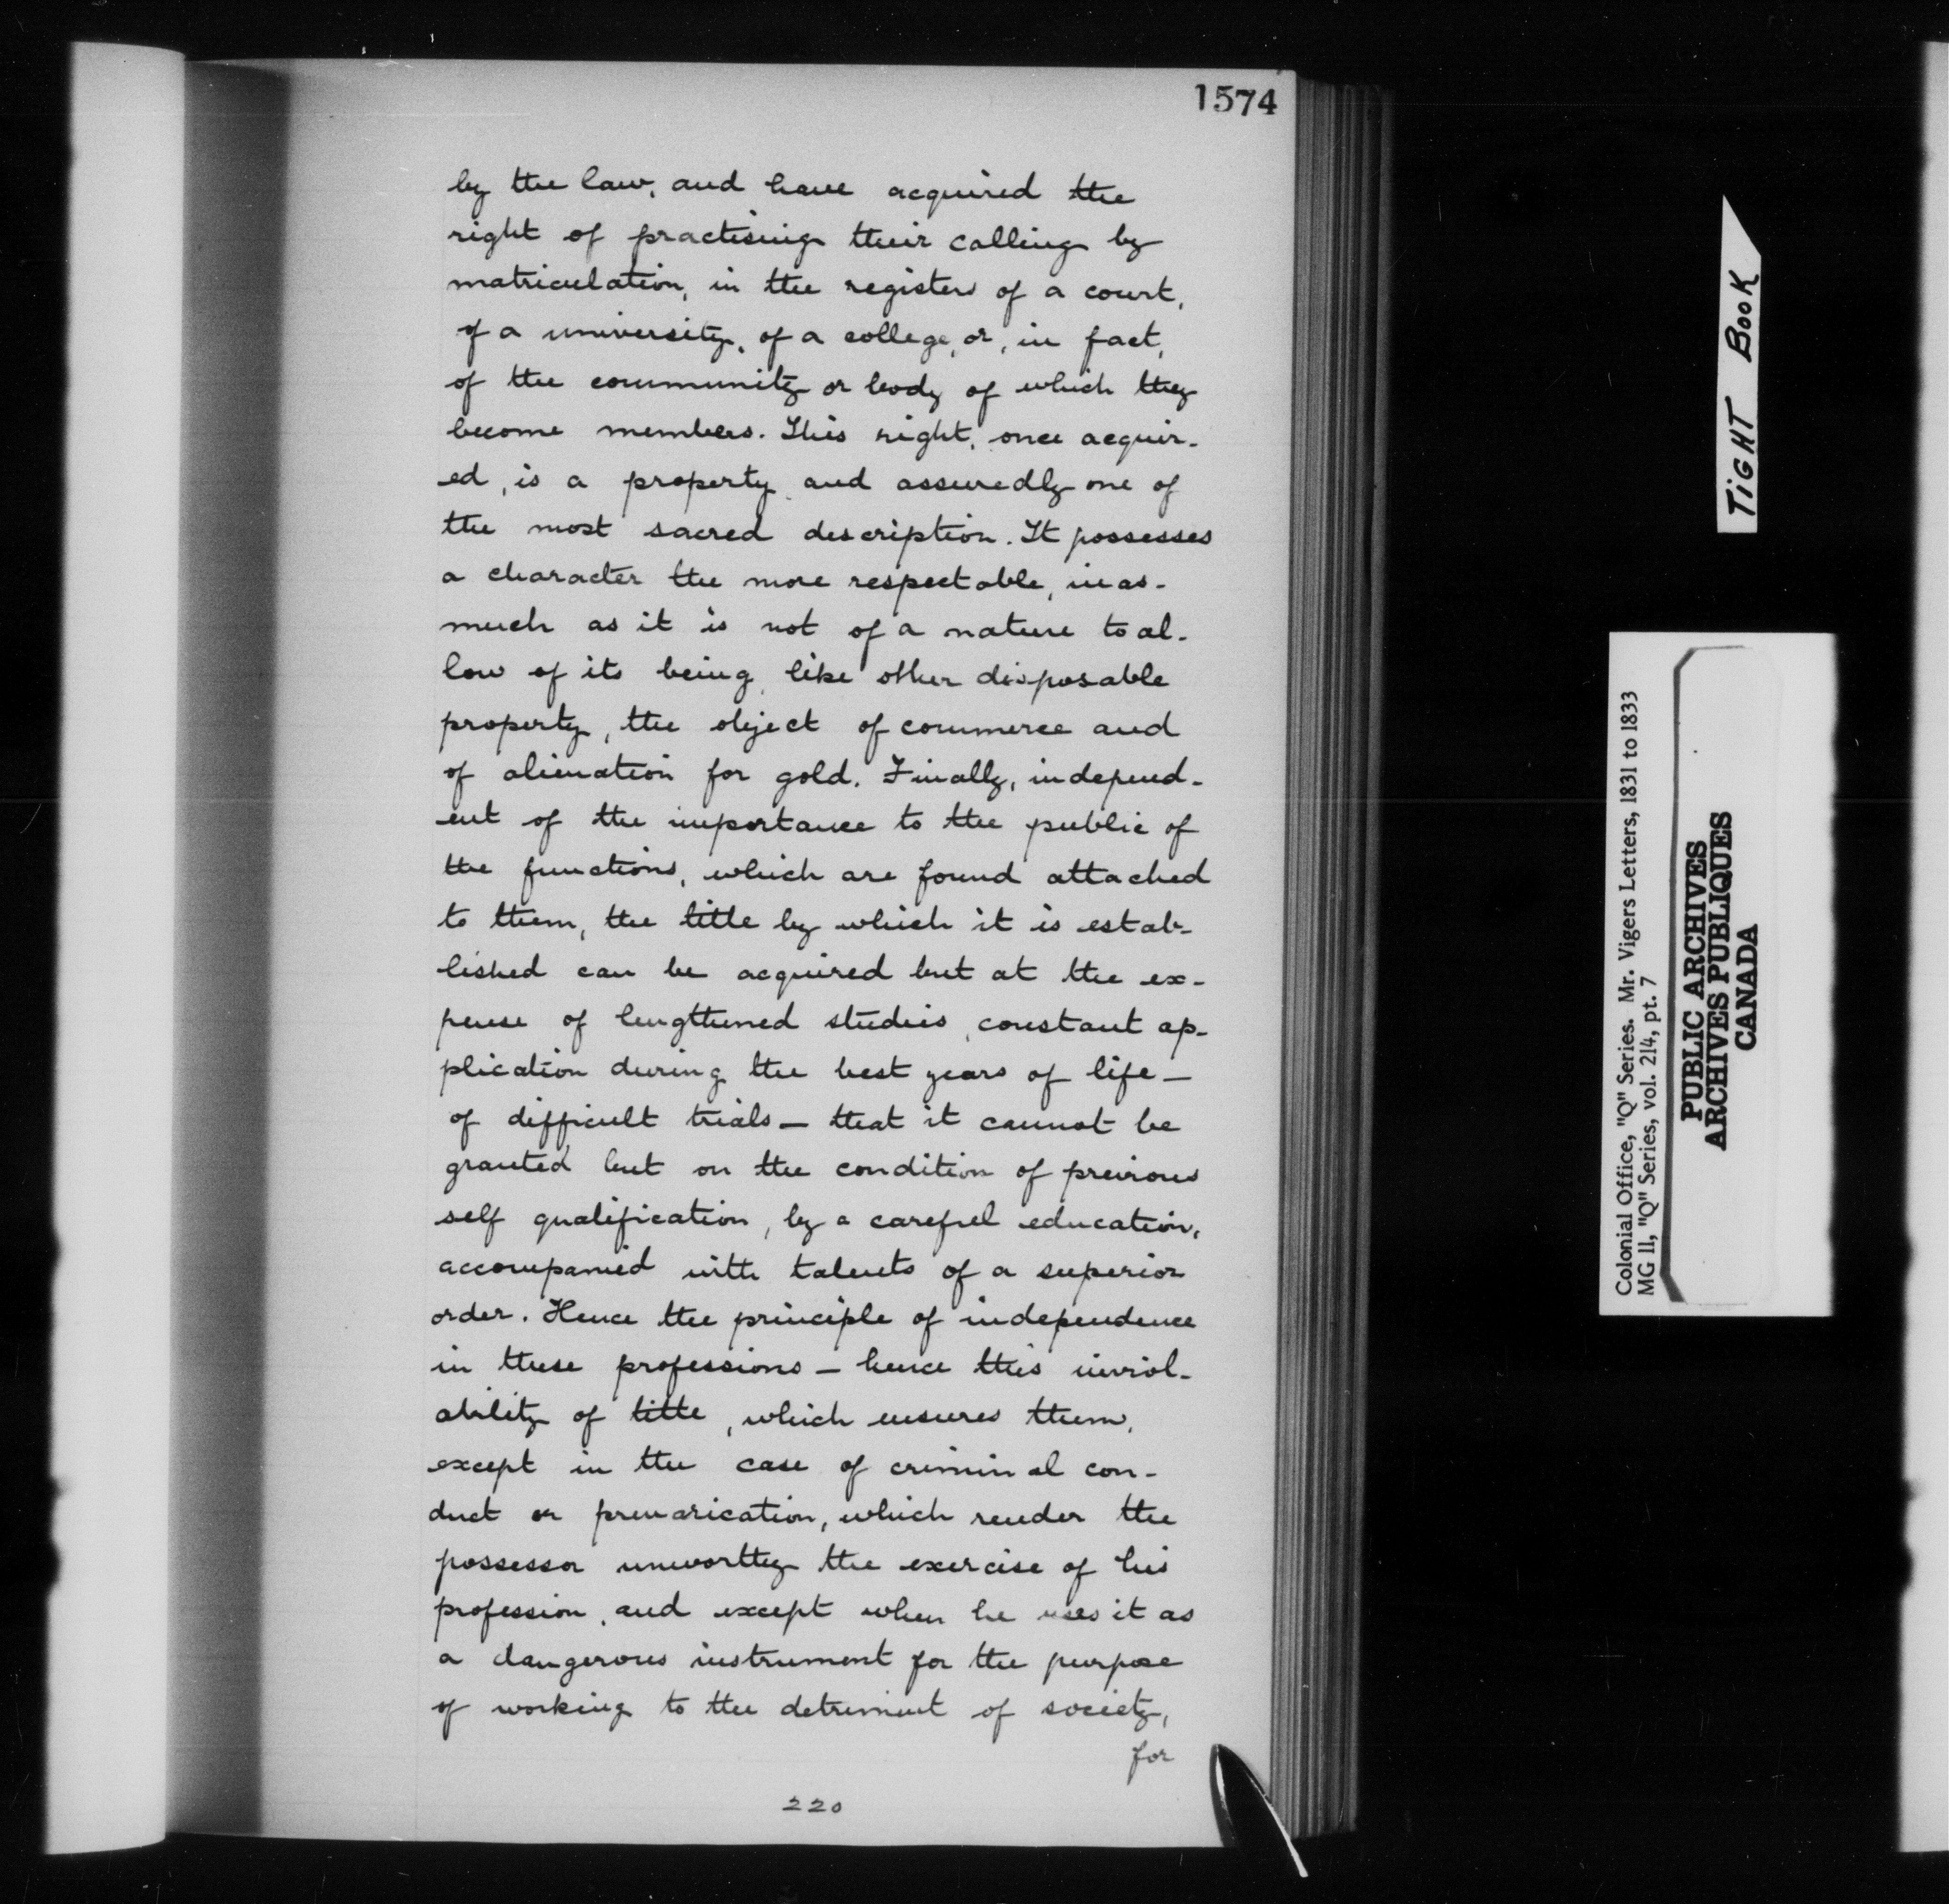 1574
by the law, and have acquired the
right of practising their calling by
matriculation, in the registers of a court,
of a university, of a college, or, in fact,
of the community or body of which they
become members. This right, once acquir-
ed, is a property, and assuredly one of
the most sacred description. It possesses
a character the more respectable, inas-
much as it is not of a nature to al-
low of its being, like other disposable
property, the object of commerce and
of alienation for gold. Finally, independ-
ent of the importance to the public of
the functions, which are found attached
to them, the title by which it is estab-
lished can be acquired but at the ex-
pense of lengthened studies, constant ap-
plication during the best years of life —
of difficult trials — that it cannot be
granted but on the condition of previous
self qualification, by a careful education,
accompanied with talents of a superior
order. Hence the principle of independence
in these professions — hence this inviol-
ability of title, which ensures them,
except in the case of criminal con-
duct or prevarication, which render the
possessor unworthy the exercise of his
profession, and except when he uses it as
a dangerous instrument for the purpose
of working to the detriment of society,
for
220
TIGHT BOOK
Colonial Office, "Q" Series. Mr. Vigers Letters, 1831 to 1833
MG 11, "Q" Series, vol. 214, pt. 7
PUBLIC ARCHIVES
ARCHIVES PUBLIQUES
CANADA